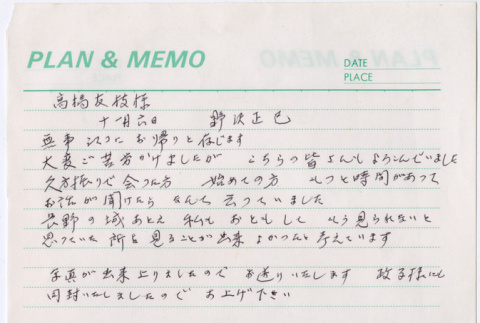 PLAN & MEMO
DATE
PLACE
高橋友枝様
十一月六日 野沢正巳
無事 お帰りと存じます
大変ご苦労かけましたが こちらの皆 よろこんでいました
久方振りで会つた方 始めての方 もつと時間があって
お話が聞けたら なんて云っていました
長野の城あとえ 私も おともして もう見られないと
思っていた所を見ることが出来 よかつたと考えています
写真が出来上りましたので お送りいたします 政子様にも
同封いたしましたので お上げ下さい